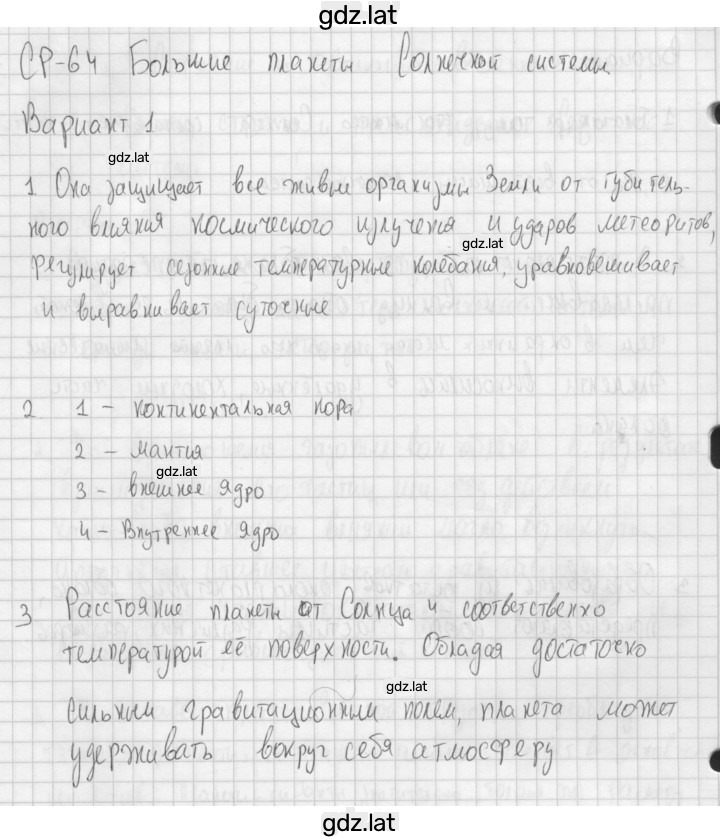 gdz.lat
СР-64 Большие планеты Солнечной системы
Вариант 1
gdz.lat
1 Она защищает все живые организмы Земли от губитель-
ного влияния космического излучения и ударов метеоритов,
gdz.lat
регулирует сезонные температурные колебания, уравновешивает
и выравнивает суточные
2 1 - континентальная кора
2 - мантия
gdz.lat
3 - внешнее ядро
4 - Внутреннее ядро
3 Расстояние планеты от Солнца и соответственно
температурой её поверхности. Обладая достаточно
gdz.lat
сильным гравитационным полем, планета может
удерживать вокруг себя атмосферу
gdz.lat